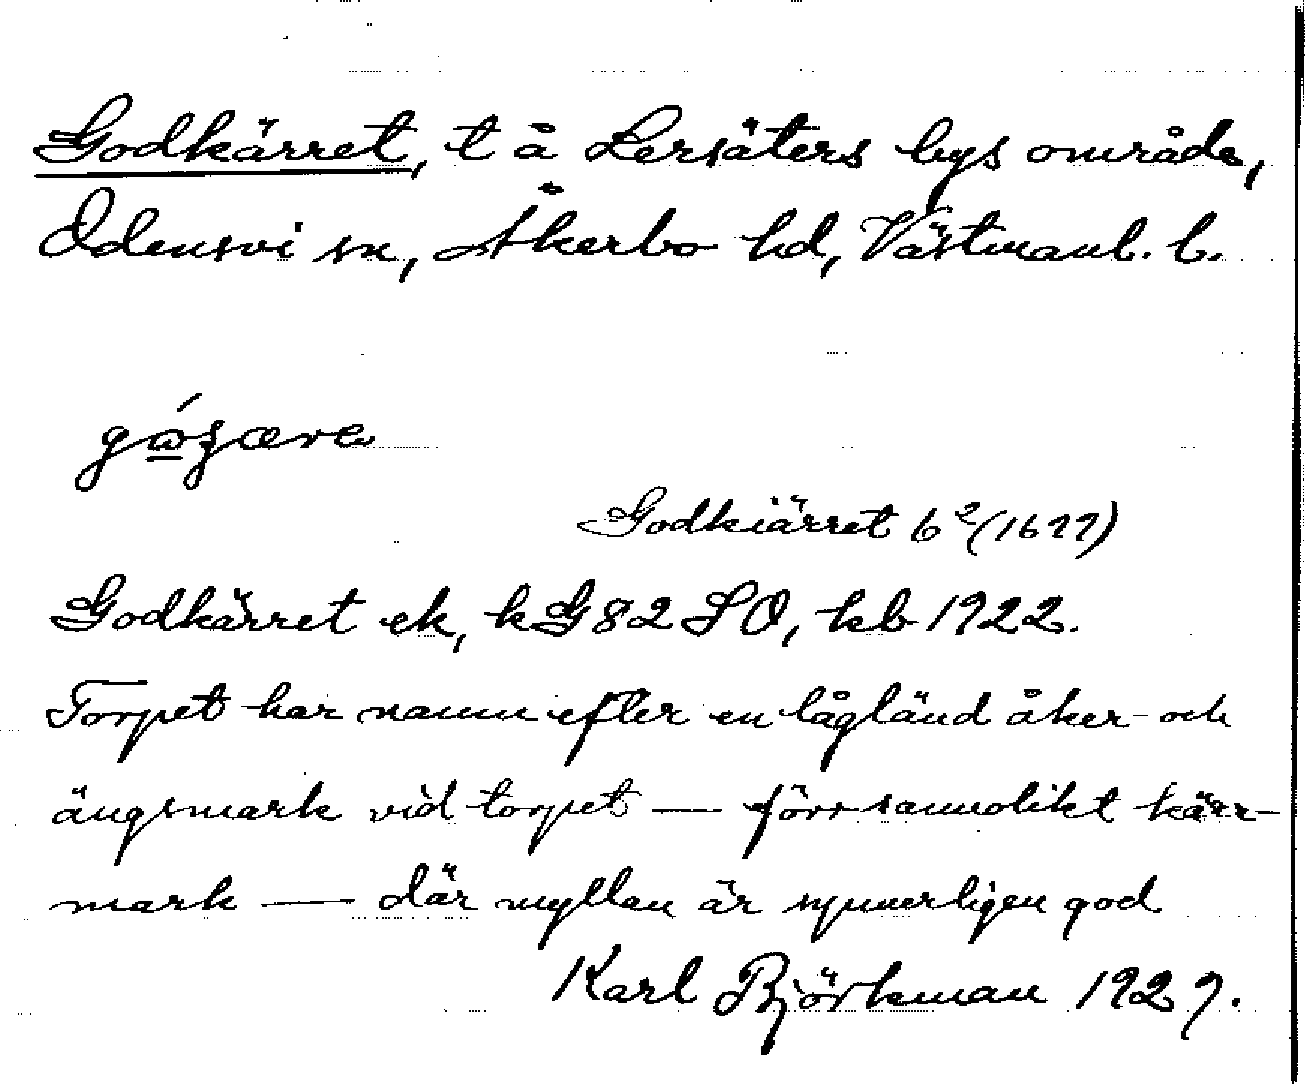 Godkärret, t å Lersäters bys område,
Odensvi sn, Åkerbo hd, Västmanl. l.
Godkiärret b² (1677)
Godkärret ek, k G82 SO, kb 1922.
Torpet har namn efter en lågländ åker- och
ängsmark vid torpet — förr sannolikt kärr-
mark — där myllan är synnerligen god
Karl Björkman 1927.